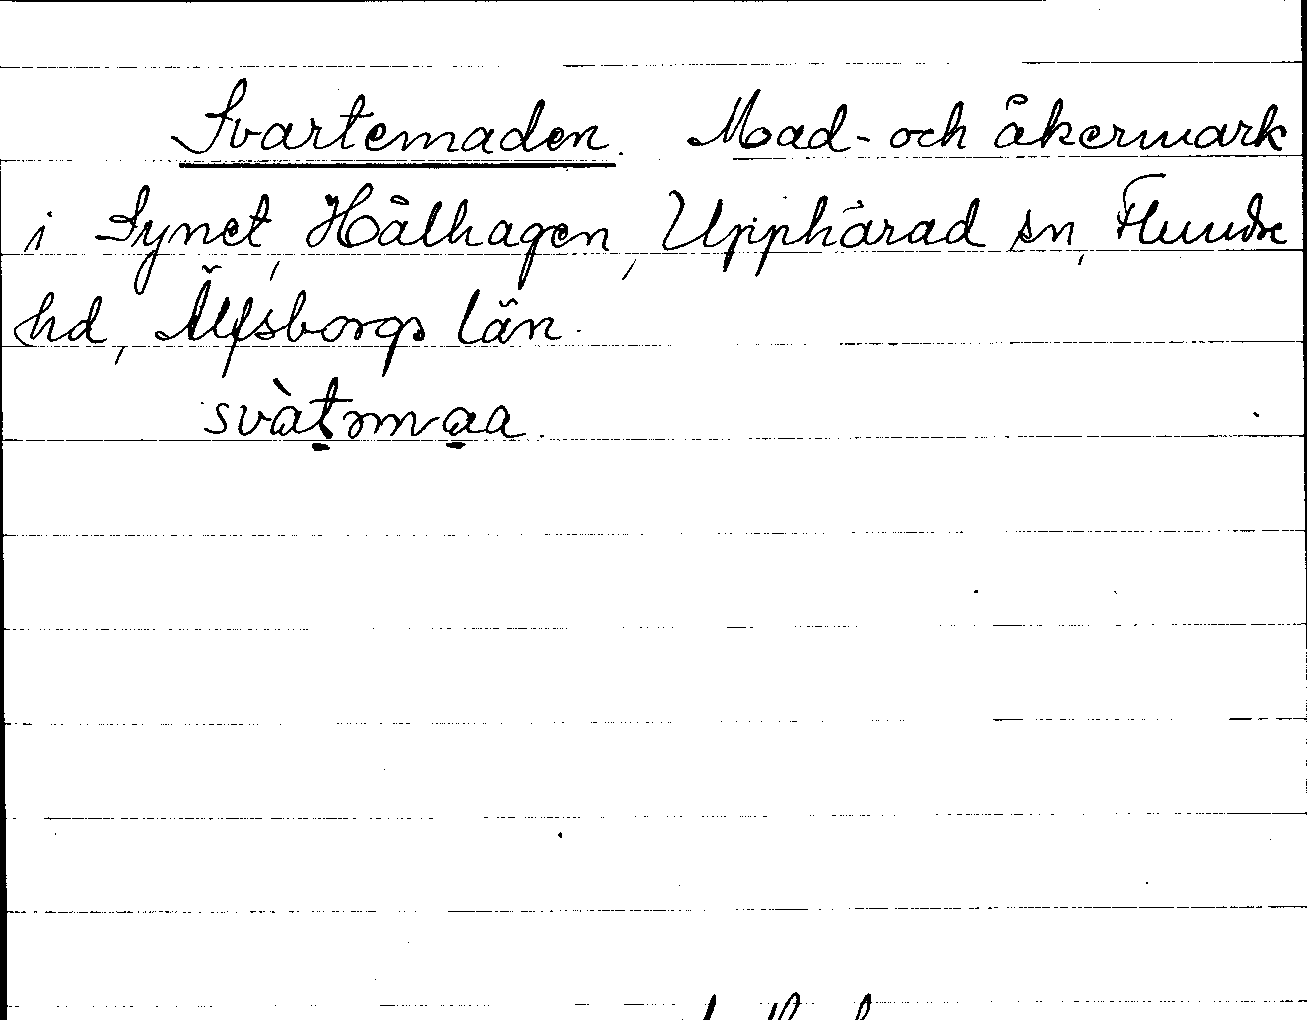 Svartemaden. Mad- och åkermark
i Synet, Hålhagen, Upphärad sn, Flundre
hd, Älfsborgs län.
svàtmaa.